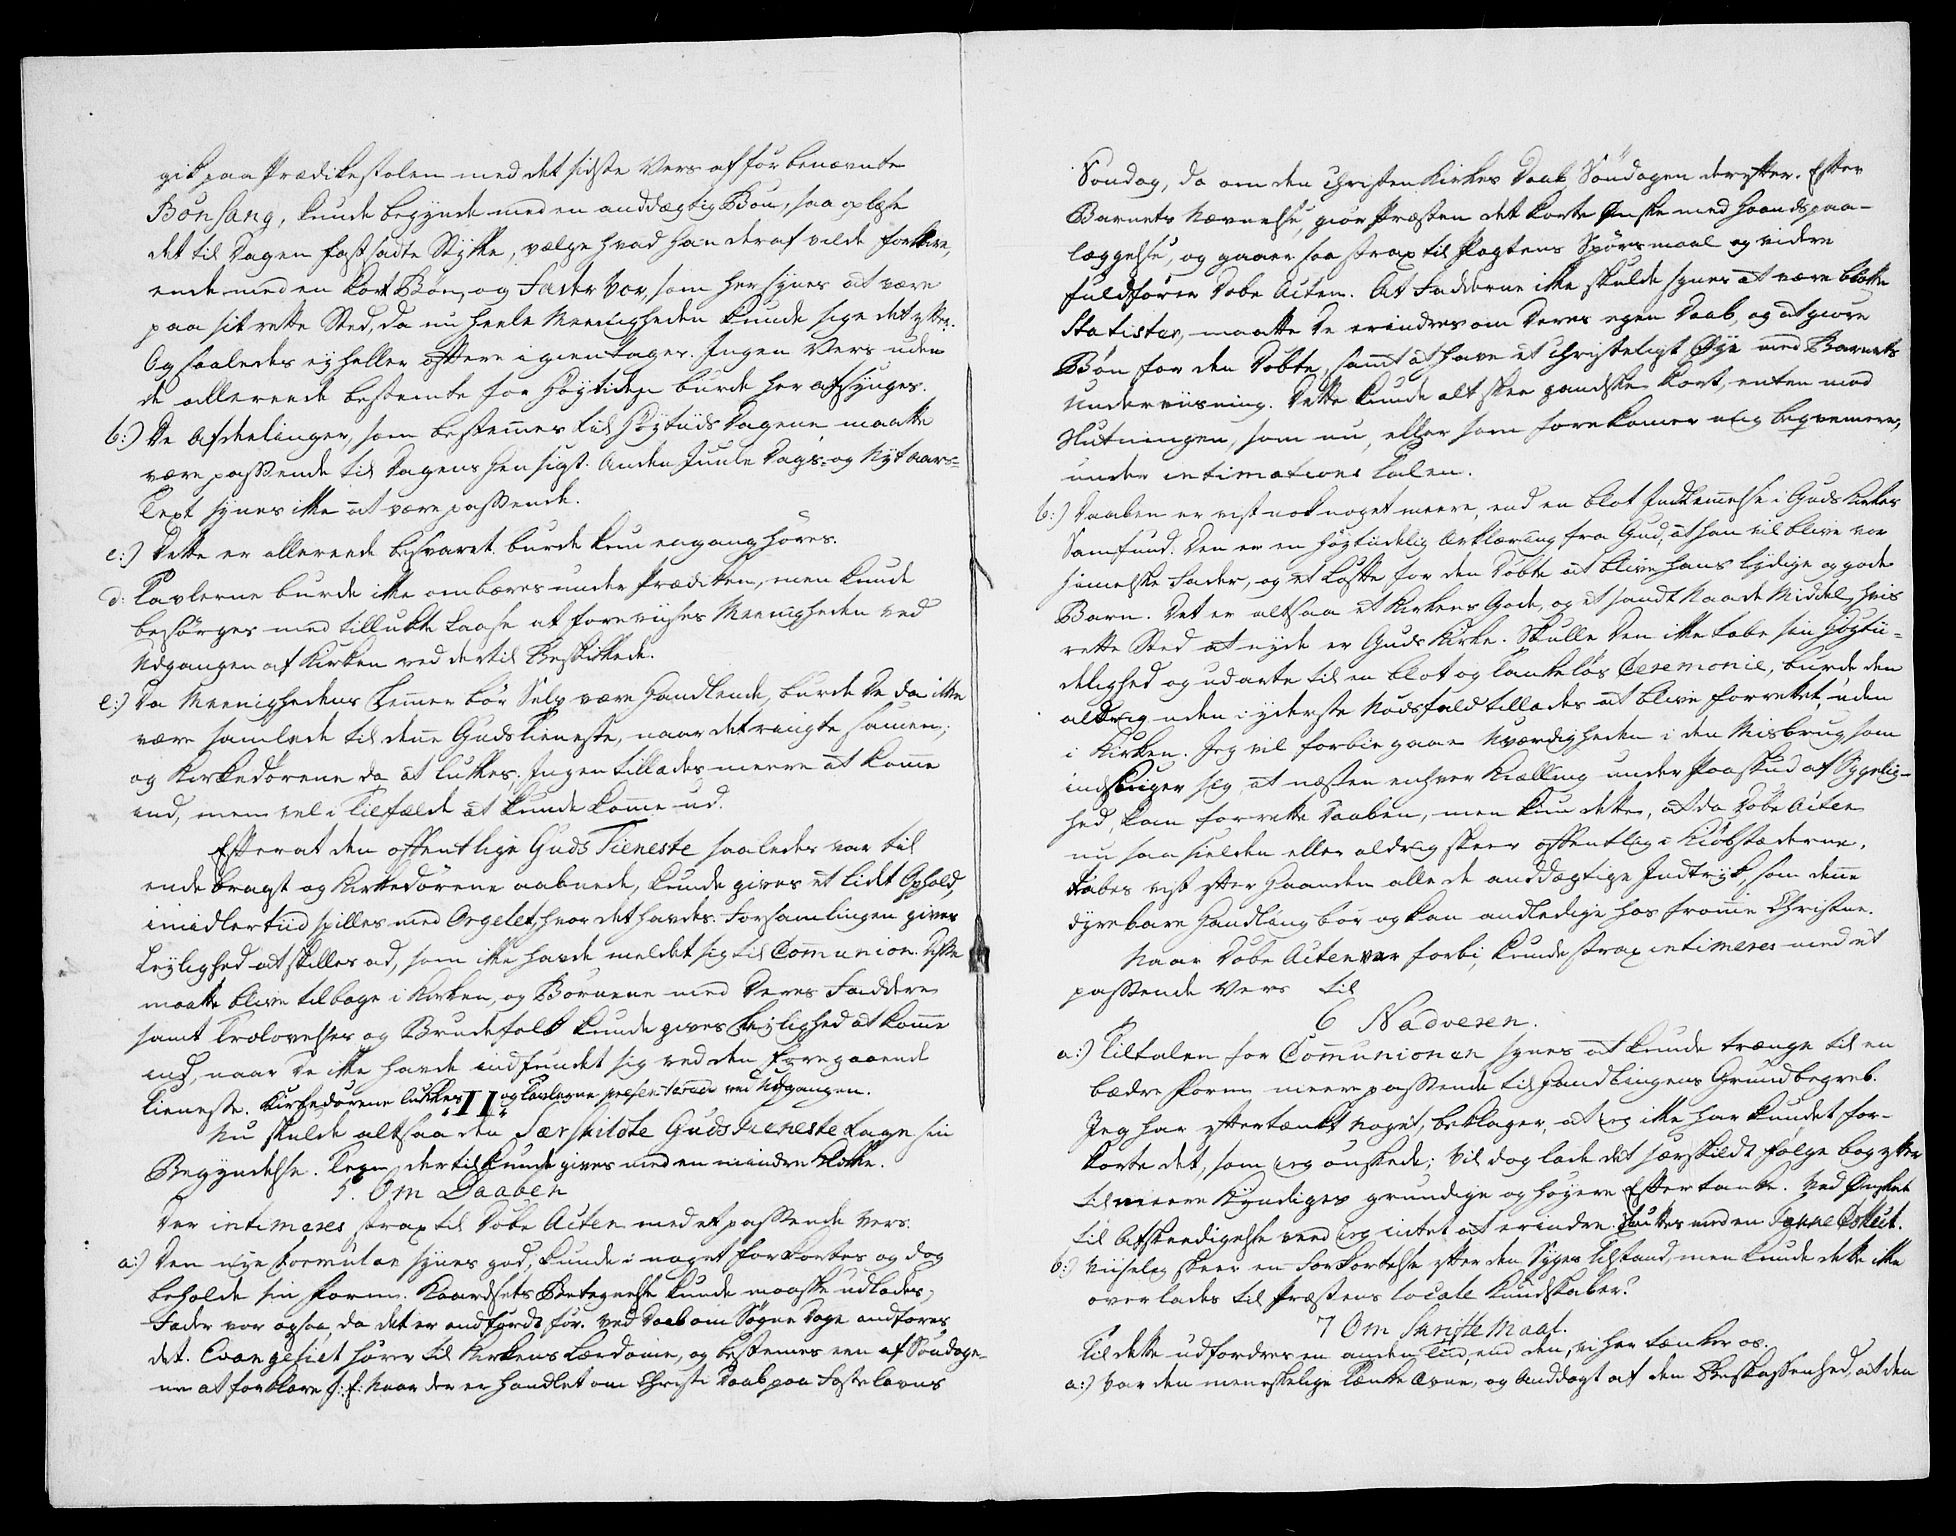 gik paa Prædikestolen med det sidste Vers af forbenævnte
Bönsang, kunde begynde med en anddægtig Bön, saa oplæse
det til Dagen fastsadte Stykke, vælge hvad han deraf vilde forklare,
ende med en kort Bön, og Fader Vor, som her synes at være
paa sit rette Sted, da nu heele Meenigheden kunde sige det efter.
Og saaledes ej heller oftere igientages. Ingen Vers uden
de allereede bestemte for Höytiden burde her afsynges.
b:) De Afdelinger, som bestemmes til Höytiids Dagene maatte
være passende til Dagens Hensigt. Anden Juule Dags- og Nytaars-
Text synes ikke at være passende.
c:) Dette er allereede besvaret burde kun engang höres.
d: Tavlerne burde ikke ombæres under Prædiken, men kunde
besörges med tillukte Laase at foreviises Meenigheden ved
Udgangen af Kirken ved dertil Beskikkede.
e:) Da Meenighedens Lemmer bör Selv være Handlende, burde De da ikke
være samlede til denne Gudstieneste, naar det ringte samen;
og Kirkedörene da at lukkes. Ingen tillades meere at komme
ind, men vel i Tilfælde at kunde komme ud.
Efterat den offentlige Guds Tieneste saaledes var til
ende bragt og Kirkedörene aabnede, kunde gives et lidt Ophold,
imidlertiid spilles med Orgelet, hvor det havdes. Forsamlingen gives
Leylighed at skilles ad, som ikke havde meldet sig til Communion. Disse
maatte blive tilbage i Kirken, og Börnene med Deres Faddere
samt Trolovelses og Brudefolk kunde gives Leylighed at komme
ind, naar De ikke havde indfundet sig ved den foregaaende
Tieneste. Kirkedörene lukkes og Tavlerne præsenteres ved Udgangen.
II
Nu skulde altsaa den Særskildte Guds Tieneste tage sin
Begyndelse. Tegn dertil kunde gives med en mindre Klokke.
5. Om Daaben
Der intimeres strax til Döbe Acten med et passende Vers.
a:) Den nye Formular synes god, kunde i noget forkortes og dog
beholde sin Form. Kaarssets Betegnelse kunde maaske udlades,
Fader vor ogsaa, da det er anfördt för. Ved Daab om Sögne Dage anföres
det. Evangeliet hörer til Kirkens Lærdomme, og bestemmes een af Söndage-
ne at forklare f: E: Naar der er handlet om Christi Daab paa Fastelavns
Söndag, da om den christen Kirkes Daab Söndagen derefter. Efter
Barnets Nævnelse, giör Præsten det korte Önske med Haandspaa-
læggelse, og gaaer saa strax til Pagtens Spörsmaal og videre
fuldförer Döbe Acten. At Fadderne ikke skulde synes at være blotte
Statister, maatte De erindres om Deres egen Daab, og at giöre
Bön for den Döbte, samt at have et christeligt Öye med Barnets
Underviisning. Dette kunde alt skee gandske kort, enten med
Slutningen, som nu, eller som forekommer mig beqvemere,
under intimations Talen.
b:) Daaben er vist nok noget meere, end en blot Indlemmelse i Guds Kirkes
Samfund. Den er en höytiidelig Erklæring fra Gud, at han vil blive vor
himmelske Fader, og et Löfte for den Döbte at blive hans lydige og gode
Barn. Det er altsaa et Kirkens Gode, og et sandt Naade Middel, hvis
rette Sted at nyde er Guds Kirke. Skulle Den ikke tabe sin Höytii-
delighed og udarte til en blot og tankelös Ceremonie, burde den
aldrig uden i yderste Nödsfald tillades at blive forrettet, uden
i Kirken. Jeg vil forbiegaae Uværdigheden i den Misbrug, som
indsniger sig, at næsten enhver Kiælling under Paaskud af Sygelig-
hed, kan forrette Daaben, men kun dette, at da Döbe Acten
nu saa sielden eller aldrig skeer offentlig i Kiöbstæderne,
tabes vist efter Haanden alle de anddægtige Indtryk, som denne
dyrebare Handling bör og kan andledige hos fromme Christne.
Naar Döbe Acten var forbi, kunde strax intimeres med et
passende Vers til
6 Nadveren.
a:) Tiltalen for Communionen synes at kunde trænge til en
bædre Form meere passende til Handlingens Grundbegreb.
Jeg har eftertænkt noget, beklager, at jeg ikke har kundet for-
korte det, som jeg önskede; Vil dog lade det særskildt fölge bag efter
til meere Kyndiges grundige og höyere Eftertanke. Ved Önsket
til Afskeedigelse veed jeg intet at erindre. Sluttes med en
b:) Nüselig skeer en Forkortelse efter den Syges Tilstand, men kunde dette ikke
overlades til Præstens locale Kundskaber?
7 Om Skrifte Maal.
Til dette udfordres en anden Tiid, end den, vi her tænker os.
a:) Var den menneskelige Tænke Evne, og Anddagt af den Beskaffenhed, at den